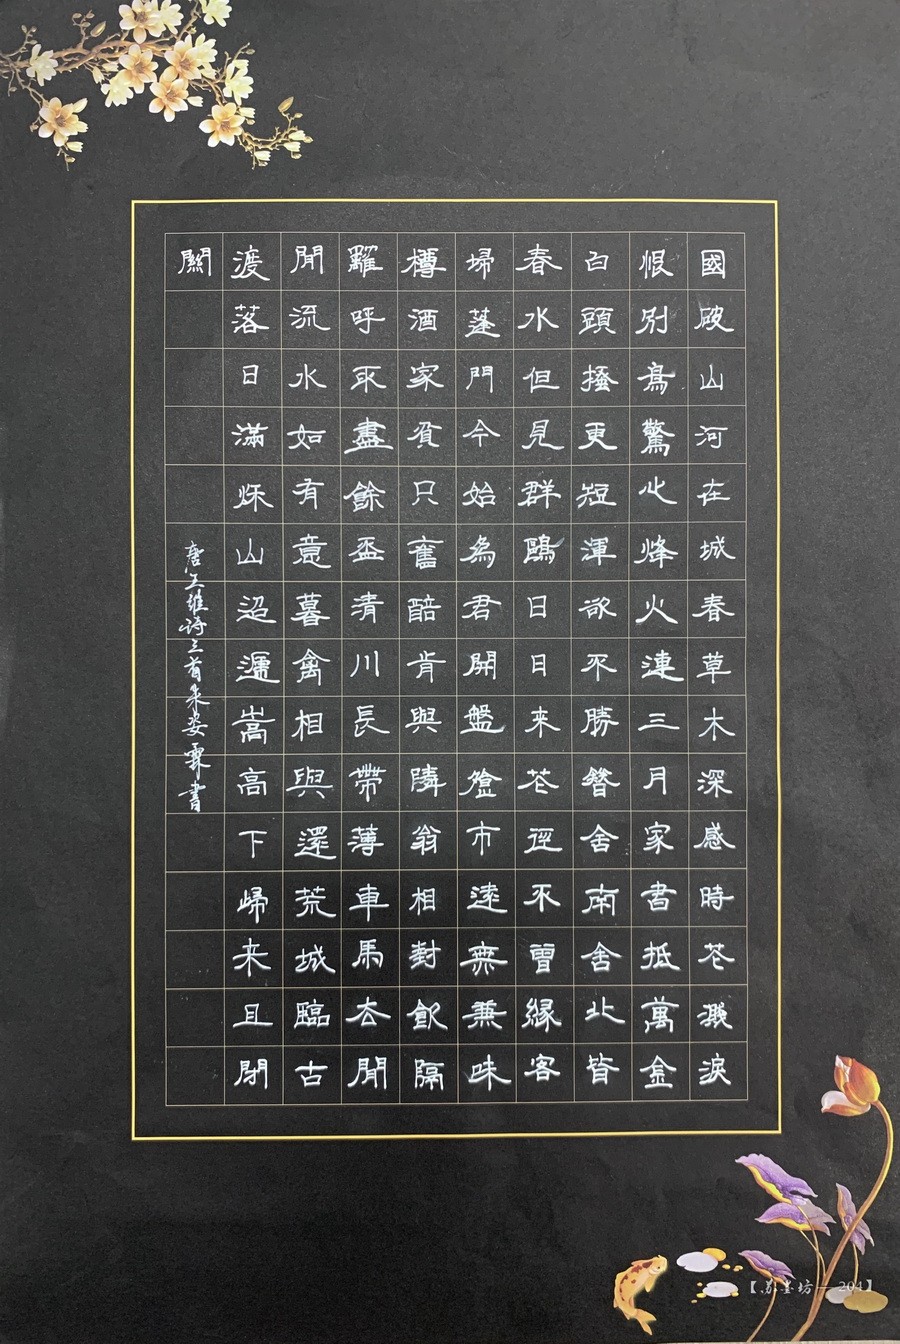 國破山河在城春草木深感時花濺淚
恨別鳥驚心烽火連三月家書抵萬金
白頭搔更短渾欲不勝簪舍南舍北皆
春水但見群鷗日日来花徑不曾緣客
埽蓬門今始為君開盤飧市遠無兼味
樽酒家貧只舊醅肯與隣翁相對飲隔
籬呼取盡餘盃清川長帶薄車馬去閒
閒流水如有意暮禽相與還荒城臨古
渡落日滿秋山迢遞嵩高下歸来且閉
關
唐王維詩三首朱姿霖書
【苏墨坊—204】